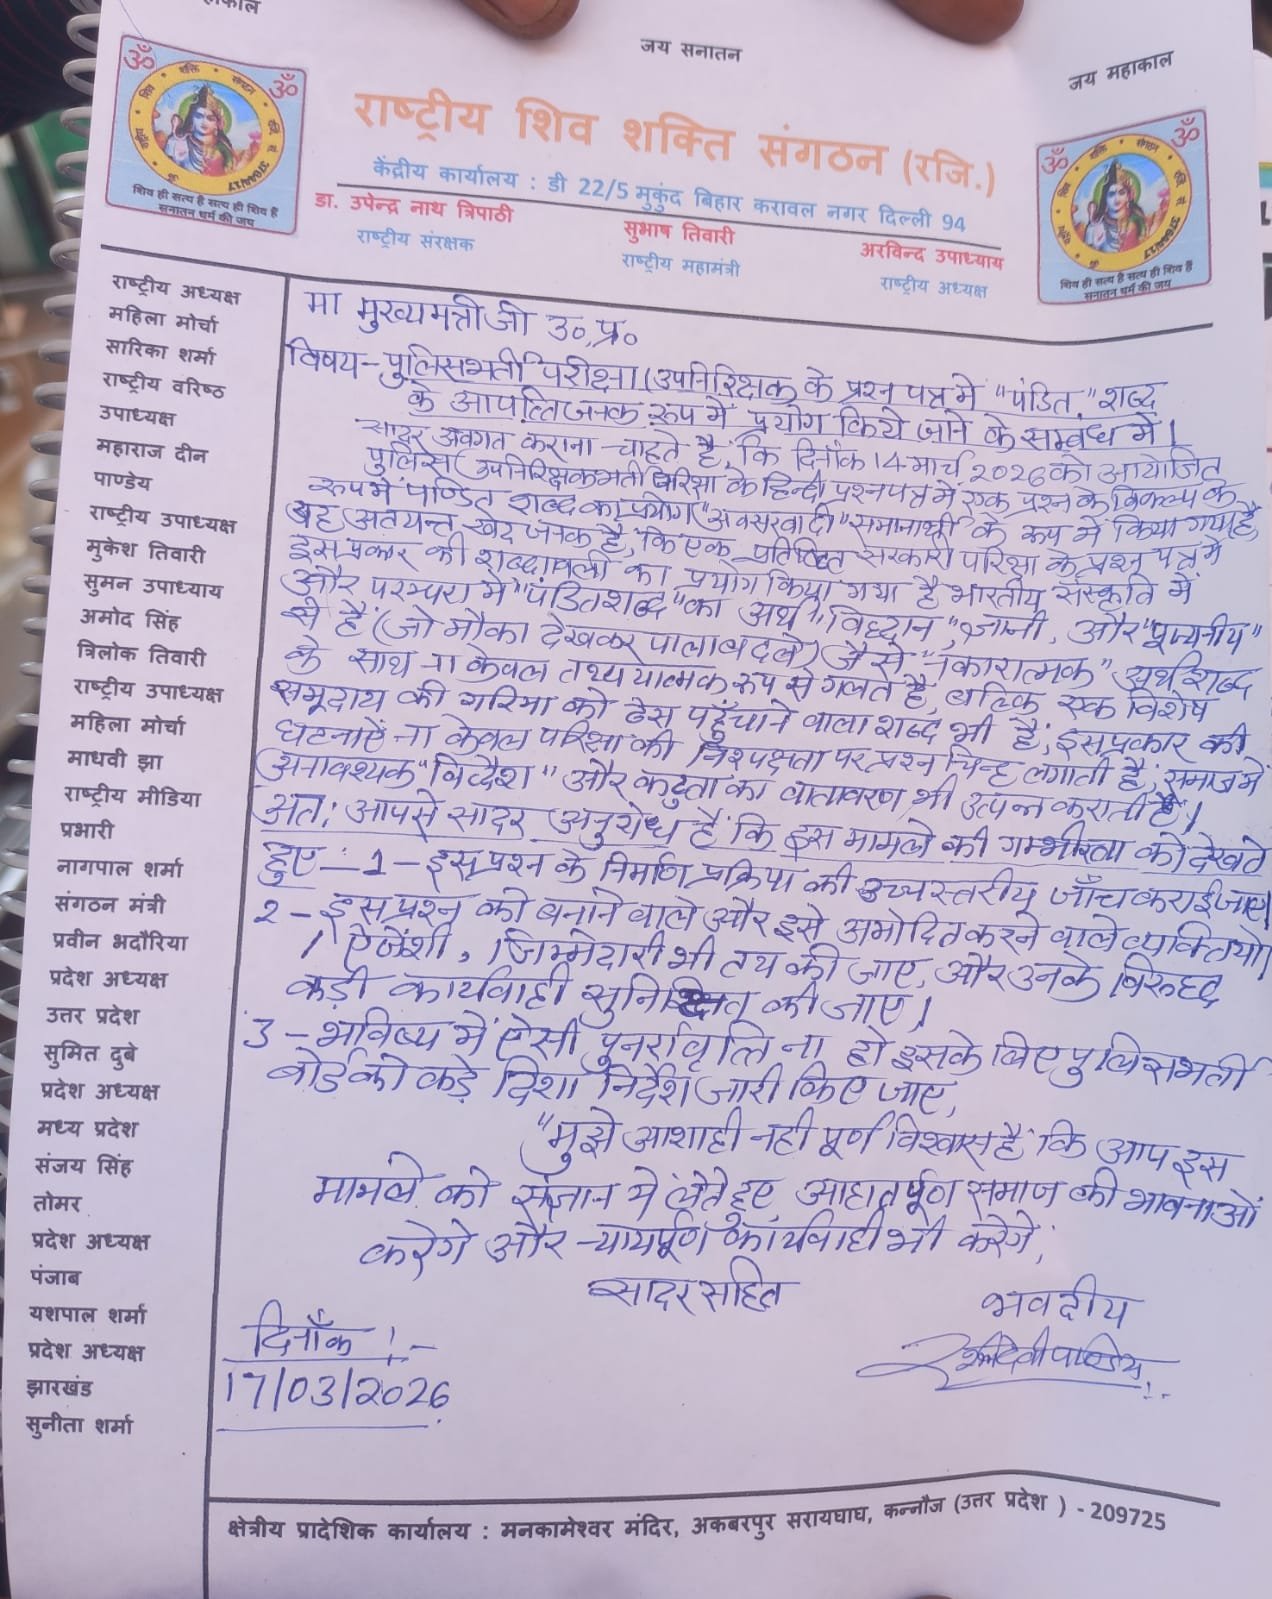 हाकाल
जय सनातन
जय महाकाल
राष्ट्रीय शिव शक्ति संगठन (रजि.)
केंद्रीय कार्यालय : डी 22/5 मुकुंद बिहार करावल नगर दिल्ली 94
डा. उपेन्द्र नाथ त्रिपाठी
राष्ट्रीय संरक्षक
सुभाष तिवारी
राष्ट्रीय महामंत्री
अरविन्द उपाध्याय
राष्ट्रीय अध्यक्ष
ॐ ॐ
शिव शक्ति संगठन
शिव ही सत्य है सत्य ही शिव हैं
सनातन धर्म की जय
ॐ ॐ
शिव शक्ति संगठन
शिव ही सत्य है सत्य ही शिव हैं
सनातन धर्म की जय
राष्ट्रीय अध्यक्ष
महिला मोर्चा
सारिका शर्मा
राष्ट्रीय वरिष्ठ
उपाध्यक्ष
महाराज दीन
पाण्डेय
राष्ट्रीय उपाध्यक्ष
मुकेश तिवारी
सुमन उपाध्याय
अमोद सिंह
त्रिलोक तिवारी
राष्ट्रीय उपाध्यक्ष
महिला मोर्चा
माधवी झा
राष्ट्रीय मीडिया
प्रभारी
नागपाल शर्मा
संगठन मंत्री
प्रवीन भदौरिया
प्रदेश अध्यक्ष
उत्तर प्रदेश
सुमित दुबे
प्रदेश अध्यक्ष
मध्य प्रदेश
संजय सिंह
तोमर
प्रदेश अध्यक्ष
पंजाब
यशपाल शर्मा
प्रदेश अध्यक्ष
झारखंड
सुनीता शर्मा
मा मुख्यमन्त्री जी उ०,प्र०
विषय-पुलिसभर्ती परीक्षा (उपनिरिक्षक के प्रश्न पत्र में "पंडित" शब्द
के आपत्तिजनक रूप में प्रयोग किये जाने के सम्बंध में।
सादर अवगत कराना-चाहते है, कि दिनाँक 14 मार्च 2026 को आयोजित
पुलिस (उपनिरिक्षकभर्ती परिक्षा के हिन्दी प्रश्नपत्र में एक प्रश्न के विकल्प के
रूप में पण्डित शब्द का प्रयोग "अवसरवादी" समानार्थी के रूप में किया गया है,
यह अतयन्त खेद जनक है, कि एक प्रतिष्ठित सरकारी परिक्षा के प्रश्न पत्र में
इस प्रकार की शब्दावली का प्रयोग किया गया है भारतीय संस्कृति में
और परम्परा में "पंडित शब्द" का अर्थ "विद्धान", ज्ञानी, और "पूज्यनीय"
से है (जो मौका देखकर पाला बदले) जैसे "नकारात्मक" अर्थ शब्द
के साथ ना केवल तथ्ययात्मक रूप से गलत है, बल्कि एक विशेष
समूदाय की गरिमा को ठेस पहुँचाने वाला शब्द भी है, इस प्रकार की
घटनाऐं ना केवल परिक्षा की निश्पक्षता पर प्रश्न चिन्ह लगाती है, समाज में
अनावश्यक "विद्वेश" और कटुता का वातावरण भी उत्पन्न कराती है।
अतः आपसे सादर अनुरोध है कि इस मामले की गम्भीरता को देखते
हुए :- 1 - इस प्रश्न के निर्माण प्रक्रिया की उच्चस्तरीय जाँच कराई जाए।
2 - इस प्रश्न को बनाने वाले और इसे अमोदित करने वाले व्यक्तियो।
/ ऐजेंशी, जिम्मेदारी भी तय की जाए, और उनके विरूद्द
कड़ी कार्यवाही सुनिश्चित की जाए।
3 - भविष्य में ऐसी पुनर्रावृत्ति ना हो इसके लिए पुलिस भर्ती
बोर्ड को कड़े दिशा निर्देश जारी किए जाए,
"मुझे आशा ही नही पूर्ण विश्वास है कि आप इस
मामले को संज्ञान में लेते हुए आहातपूर्ण समाज की भावनाओं
करेगे और न्यायपूर्ण कार्यवाही भी करेगे,
सादर सहित
भवदीय
दिनाँक :-
17/03/2026
क्षेत्रीय प्रादेशिक कार्यालय : मनकामेश्वर मंदिर, अकबरपुर सरायघाघ, कन्नौज (उत्तर प्रदेश ) - 209725